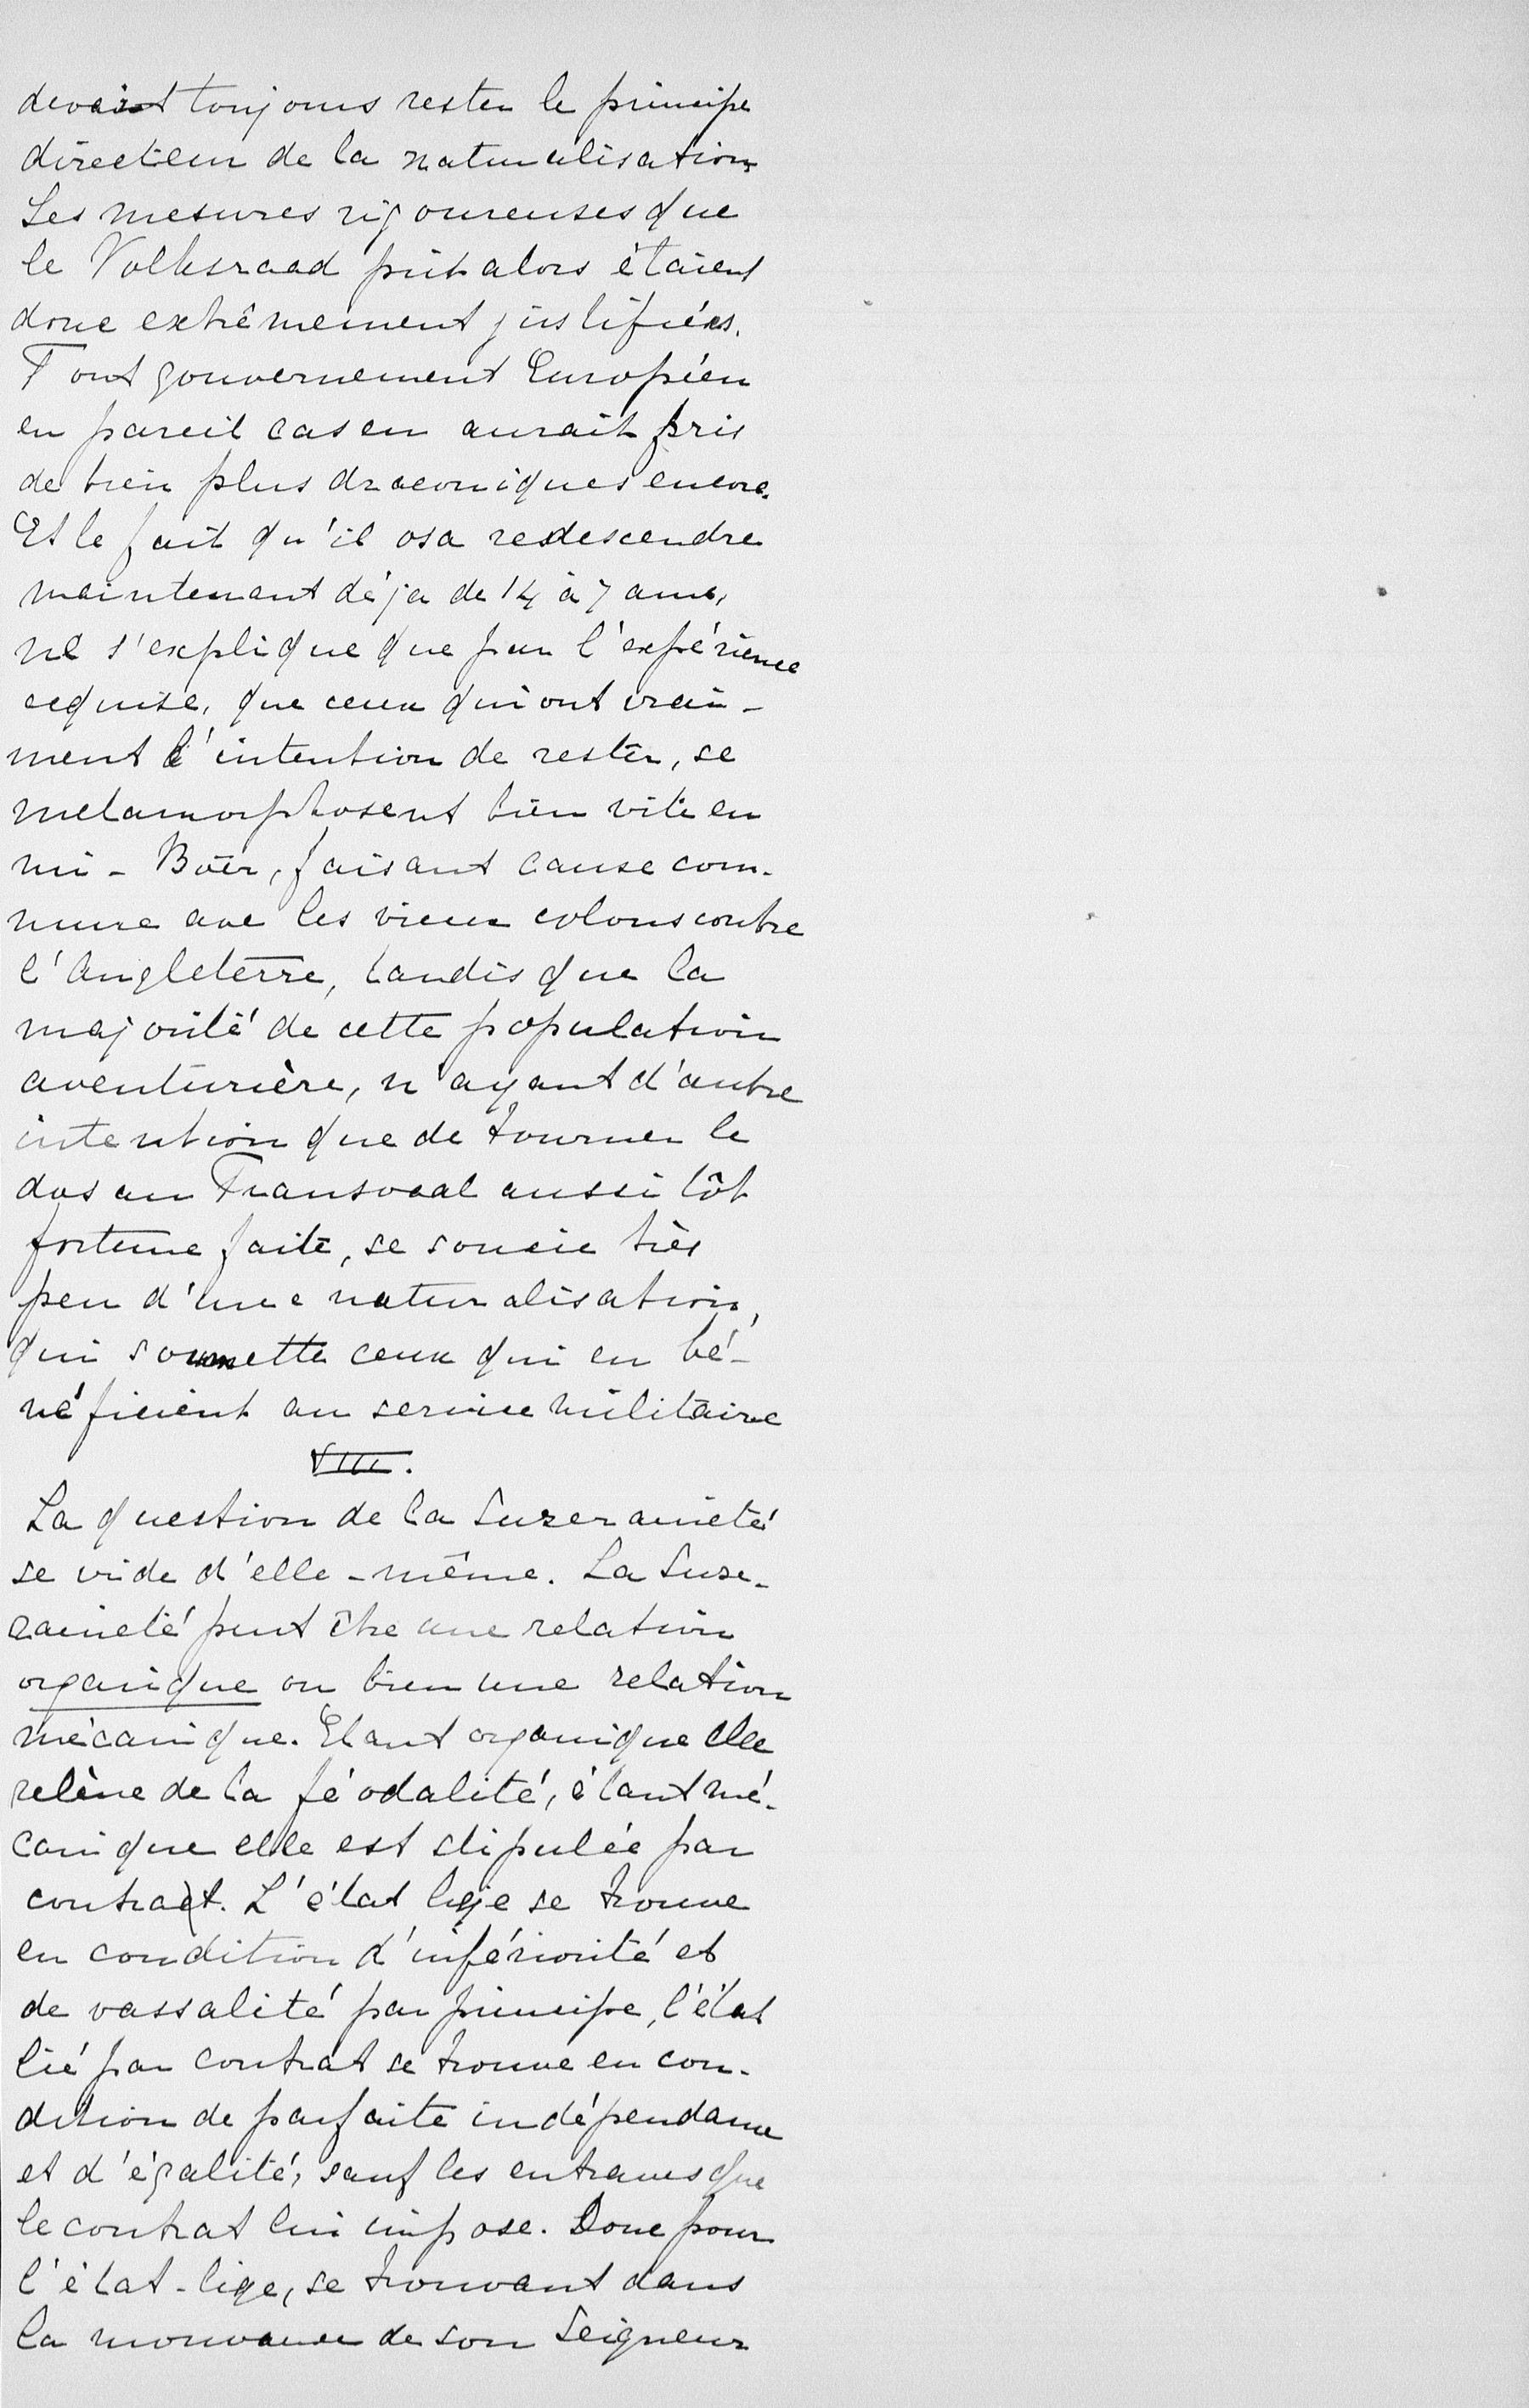 devait toujours rester le principe
directeur de la naturalisation
Les mesures rigoureuses que
le Volksraad prit alors étaient
donc extrêmement justifiées.
Tout gouvernement Européen
en pareil cas en aurait pris
de bien plus draconiques encore.
Et le fait qu'il osa redescendre
maintenant déja de 14 à 7 ans,
ne s'explique que par l'expérience
acquise, que ceux qui ont vrai-
ment l'intention de rester, se
metamorphosent bien vite en
mi-Boër, faisant cause com-
mune avec les vieux colons contre
l'Angleterre, tandis que la
majorité de cette population
aventurière, n'ayant d'autre
intention que de tourner le
dos au Transvaal aussi tôt
fortune faite, se soucie très
peu d'une naturalisation,
qui soumette ceux qui en bé-
néficient au service militaire
VIII.
La question de la Suzeraineté
se vide d'elle-même. La Suze-
raineté peut être une relation
organique ou bien une relation
mécanique. Etant organique elle
relève de la féodalité, étant mé-
canique elle est stipulée par
contrat. L'état lige se trouve
en condition d'infériorité et
de vassalité par principe, l'état
lié par contrat se trouve en con-
dition de parfaite indépendance
et d'égalité, sauf les entraves que
le contrat lui impose. Donc pour
l'état-lige, se trouvant dans
la mouvance de son Seigneur